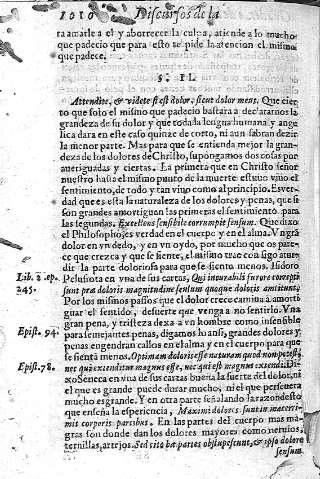 1010 Discursos de la
ra amarle a el y aborrecer la culpa, atiende a lo mucho
que padecio que para esto se pide la atencion el mismo
que padece.
§. II.
Attendite, & videte si est dolor, sicut dolor meus. Que cier
to que solo el mismo que padecio bastara a declararnos la
grandeza de su dolor y que toda la lengua humana y ange
lica dara en este caso quinze de corto, ni aun sabran dezir
la menor parte. Mas para que se entienda mejor la gran-
deza de los dolores de Christo, supongamos dos cosas por
aueriguadas y ciertas. La primera que en Christo señor
nuestro hasta el mismo punto de la muerte estuuo viuo el
sentimiento, de todo y tan viuo como al principio. Es ver
dad que es esta la naturaleza de los dolores y penas, que si
son grandes amortiguan las primeras el sentimiento para
las segundas. Excellens sensibile corrumpit sensum. Que dixo
el Philosopho, y es verdad en el cuerpo y en el alma. Vn grã
dolor en vn dedo, y en vn oydo, por mucho que os pare-
ce que crezca y que se siente, el mismo trae consigo atur
dir la parte dolorida para que se siento menos. Isidoro
Lib. 2. ep. Pelusiota en vna de sus cartas, Qui incurabili furore correpti
245. sunt præ doloris magnitudine sensum quoque doloris amittunt;
Por los mismos passos que el dolor crece camina a amorti
guar el sentido, de suerte que venga a no sentirlo. Vna
Epist. 94. gran pena, y tristeza dexa a vn hombre como insensible
para semejantes penas, digamos lo assi, grandes dolores y
penas engendran callos en el alma y en el cuerpo para que
se sientã menos. Optimam doloris esse naturam quod non potest
Epist. 78. nec qui extenditur magnus esse, nec qui est magnus extendi. Di
xo Seneca en vna de sus cartas buena la suerte del dolor, ni
el que es grande puede durar mucho, ni el que perseuera
mucho es grande. Y en otra parte señalando la razon desto
que enseña la esperiencia, Maximi dolores sunt in macerri-
mis corporis partibus. En las partes del cuerpo mas ma-
gras son donde dan los dolores mayores: como neruios,
ternillas, artejos. Sed cito hæ partes obstupescunt, & ipso dolore
sensum.